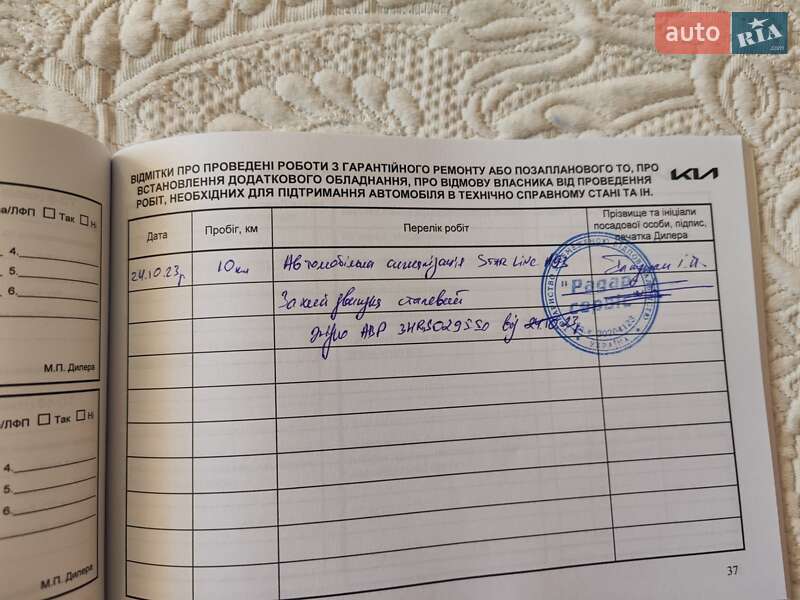 auto RIA.com
ВІДМІТКИ ПРО ПРОВЕДЕНІ РОБОТИ З ГАРАНТІЙНОГО РЕМОНТУ АБО ПОЗАПЛАНОВОГО ТО, ПРО
ВСТАНОВЛЕННЯ ДОДАТКОВОГО ОБЛАДНАННЯ, ПРО ВІДМОВУ ВЛАСНИКА ВІД ПРОВЕДЕННЯ
РОБІТ, НЕОБХІДНИХ ДЛЯ ПІДТРИМАННЯ АВТОМОБІЛЯ В ТЕХНІЧНО СПРАВНОМУ СТАНІ ТА ІН.
KIA
Дата
Пробіг, км
Перелік робіт
Прізвище та ініціали
посадової особи, підпис,
печатка Дилера
24.10.23р
10км
Автомобільна сигналізація StarLine
Захист двигуна сталевий
від 24.10.23р
"Радар
сервіс"
УКРАЇНА
/ЛФП Так Ні
4.
5.
6.
М.П. Дилера
/ЛФП Так Ні
4.
5.
6.
М.П. Дилера
37